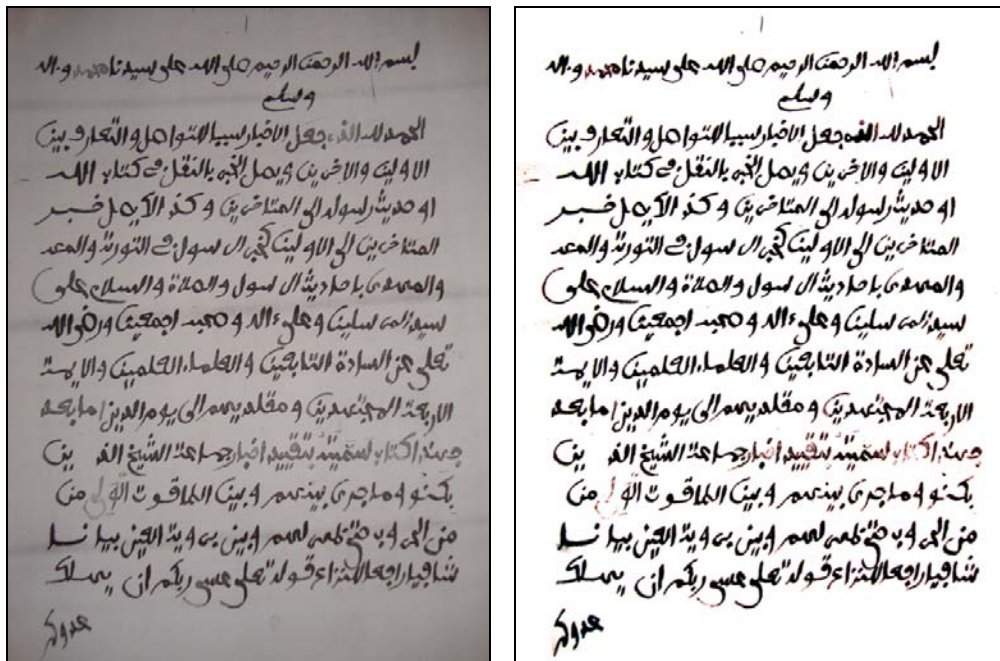 بسم الله الرحمن الرحيم صلى الله على سيدنا محمد وءاله
وسلم
الحمد لله الذي جعل الاخبار سببا للتواصل والتعارف بين
الاولين والاخرين ويصل الخبر بالنقل في كتاب الله
او حديث رسوله الى المتاخرين وكذا لا يصل خبر
المتاخرين الى الاولين كخبر الرسول في التورية
والمهدي باحاديث الرسول والصلاة والسلام على
سيد المرسلين وعلى ءاله وصحبه اجمعين ورضي الله
تعلى عن السادة التابعين والعلماء العلمين والايمة
الاربعة المجتهدين ومقلديهم الى يوم الدين اما بعد
فهذا كتاب سميته بتقييد اخبار جماعة الشيخ الذين
بكنو وما جرى بينهم وبين من
من الحروب حتى ظهر لهم وبين
شافيا رافعا للنزاع قوله تعلى عسى ربكم ان يهلك
عدوكم
بسم الله الرحمن الرحيم صلى الله على سيدنا محمد وءاله
وسلم
الحمد لله الذي جعل الاخبار سببا للتواصل والتعارف بين
الاولين والاخرين ويصل الخبر بالنقل في كتاب الله
او حديث رسوله الى المتاخرين وكذا لا يصل خبر
المتاخرين الى الاولين كخبر الرسول في التورية
والمهدي باحاديث الرسول والصلاة والسلام على
سيد المرسلين وعلى ءاله وصحبه اجمعين ورضي الله
تعلى عن السادة التابعين والعلماء العلمين والايمة
الاربعة المجتهدين ومقلديهم الى يوم الدين اما بعد
فهذا كتاب سميته بتقييد اخبار جماعة الشيخ الذين
بكنو وما جرى بينهم وبين من
من الحروب حتى ظهر لهم وبين
شافيا رافعا للنزاع قوله تعلى عسى ربكم ان يهلك
عدوكم